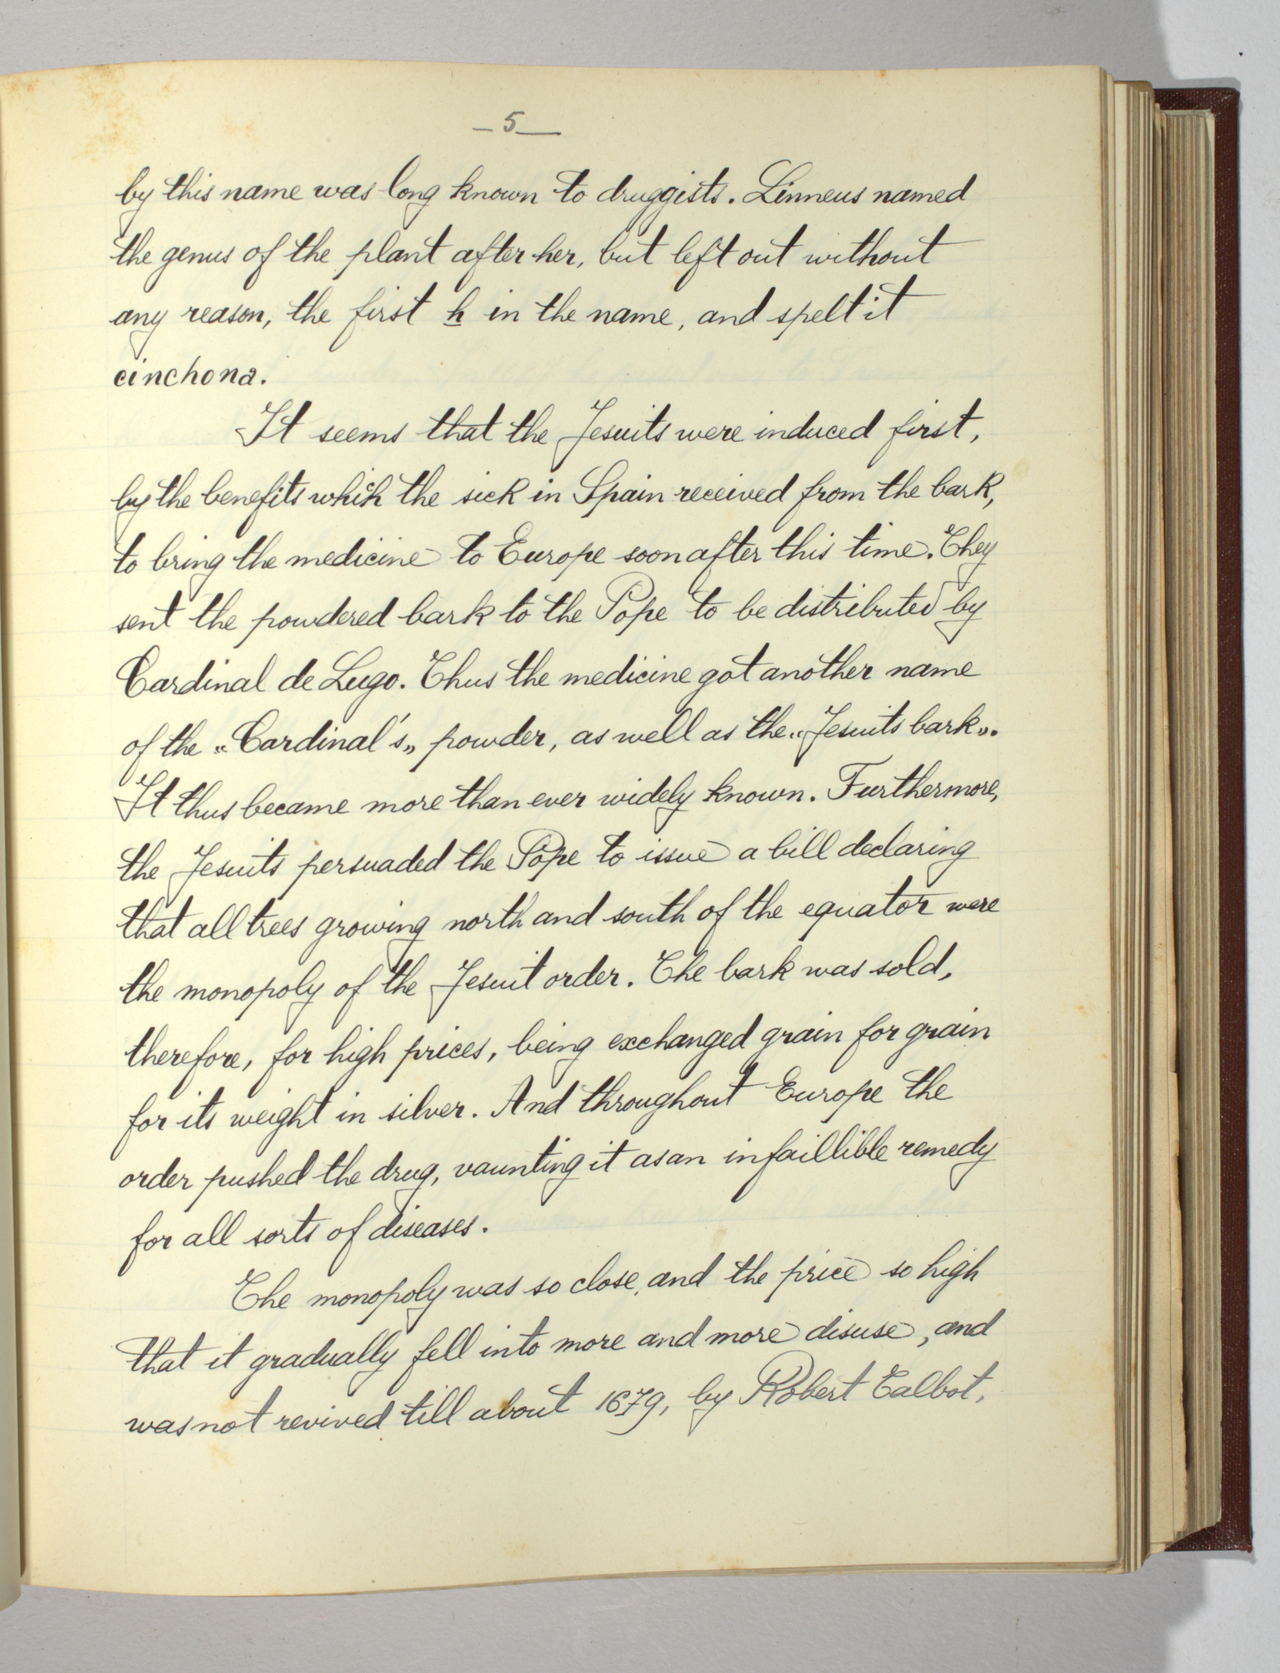 — 5 —
by this name was long known to druggists. Linneus named
the genus of the plant after her, but left out without
any reason, the first h in the name, and spelt it
cinchona.
It seems that the Jesuits were induced first,
by the benefits which the sick in Spain received from the bark,
to bring the medicine to Europe soon after this time. They
sent the powdered bark to the Pope to be distributed by
Cardinal de Lugo. Thus the medicine got another name
of the „Cardinal's„ powder, as well as the „Jesuits bark„.
It thus became more than ever widely known. Furthermore,
the Jesuits persuaded the Pope to issue a bill declaring
that all trees growing north and south of the equator were
the monopoly of the Jesuit order. The bark was sold,
therefore, for high prices, being exchanged grain for grain
for its weight in silver. And throughout Europe the
order pushed the drug, vaunting it as an infaillible remedy
for all sorts of diseases.
The monopoly was so close, and the price so high
that it gradually fell into more and more disuse, and
was not revived till about 1679, by Robert Talbot,